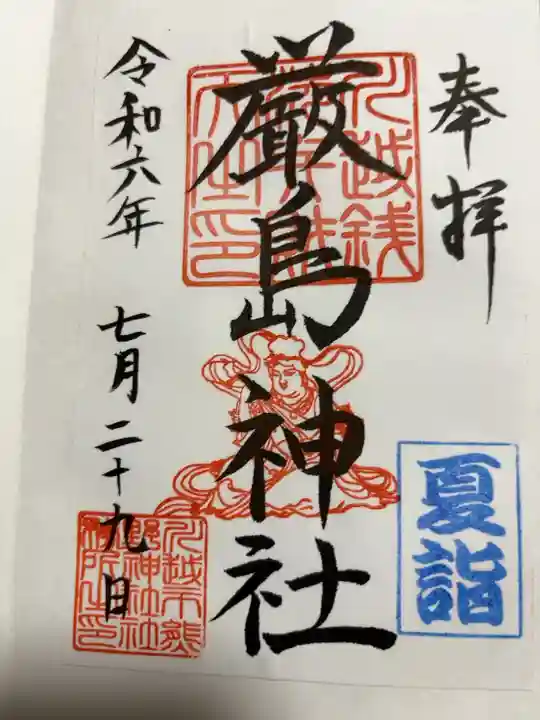 奉拝
厳島神社
令和六年
七月二十九日
夏詣